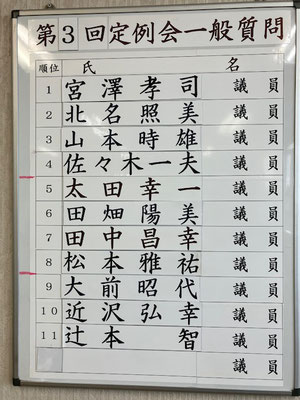 第3回定例会一般質問
順位 氏 名
1 宮澤孝司 議員
2 北名照美 議員
3 山本時雄 議員
4 佐々木一夫 議員
5 太田幸一 議員
6 田畑陽美 議員
7 田中昌幸 議員
8 松本雅祐 議員
9 大前昭代 議員
10 近沢弘幸 議員
11 辻本智 議員
議員